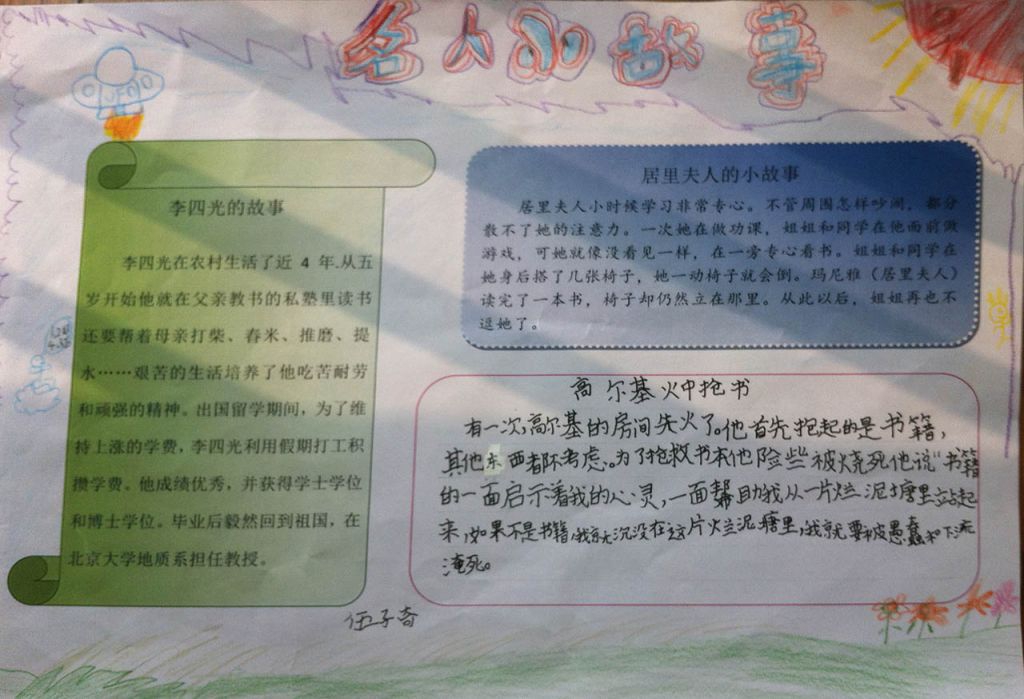 名人小故事
UFO
李四光的故事
李四光在农村生活了近 4 年.从五
岁开始他就在父亲教书的私塾里读书
还要帮着母亲打柴、舂米、推磨、提
水……艰苦的生活培养了他吃苦耐劳
和顽强的精神。出国留学期间，为了维
持上涨的学费，李四光利用假期打工积
攒学费。他成绩优秀，并获得学士学位
和博士学位。毕业后毅然回到祖国，在
北京大学地质系担任教授。
居里夫人的小故事
居里夫人小时候学习非常专心。不管周围怎样吵闹，都分
散不了她的注意力。一次她在做功课，姐姐和同学在他面前做
游戏，可她就像没看见一样，在一旁专心看书。姐姐和同学在
她身后搭了几张椅子，她一动椅子就会倒。玛尼雅（居里夫人）
读完了一本书，椅子却仍然立在那里。从此以后，姐姐再也不
逗她了。
高尔基火中抢书
有一次,高尔基的房间失火了。他首先抱起的是书籍,
其他东西都不考虑。为了抢救书本他险些被烧死他说"书籍
的一面启示着我的心灵,一面帮助我从一片烂泥塘里站起
来,如果不是书籍,我就沉没在这片烂泥塘里,我就要被愚蠢和下流
淹死。
伍子奇